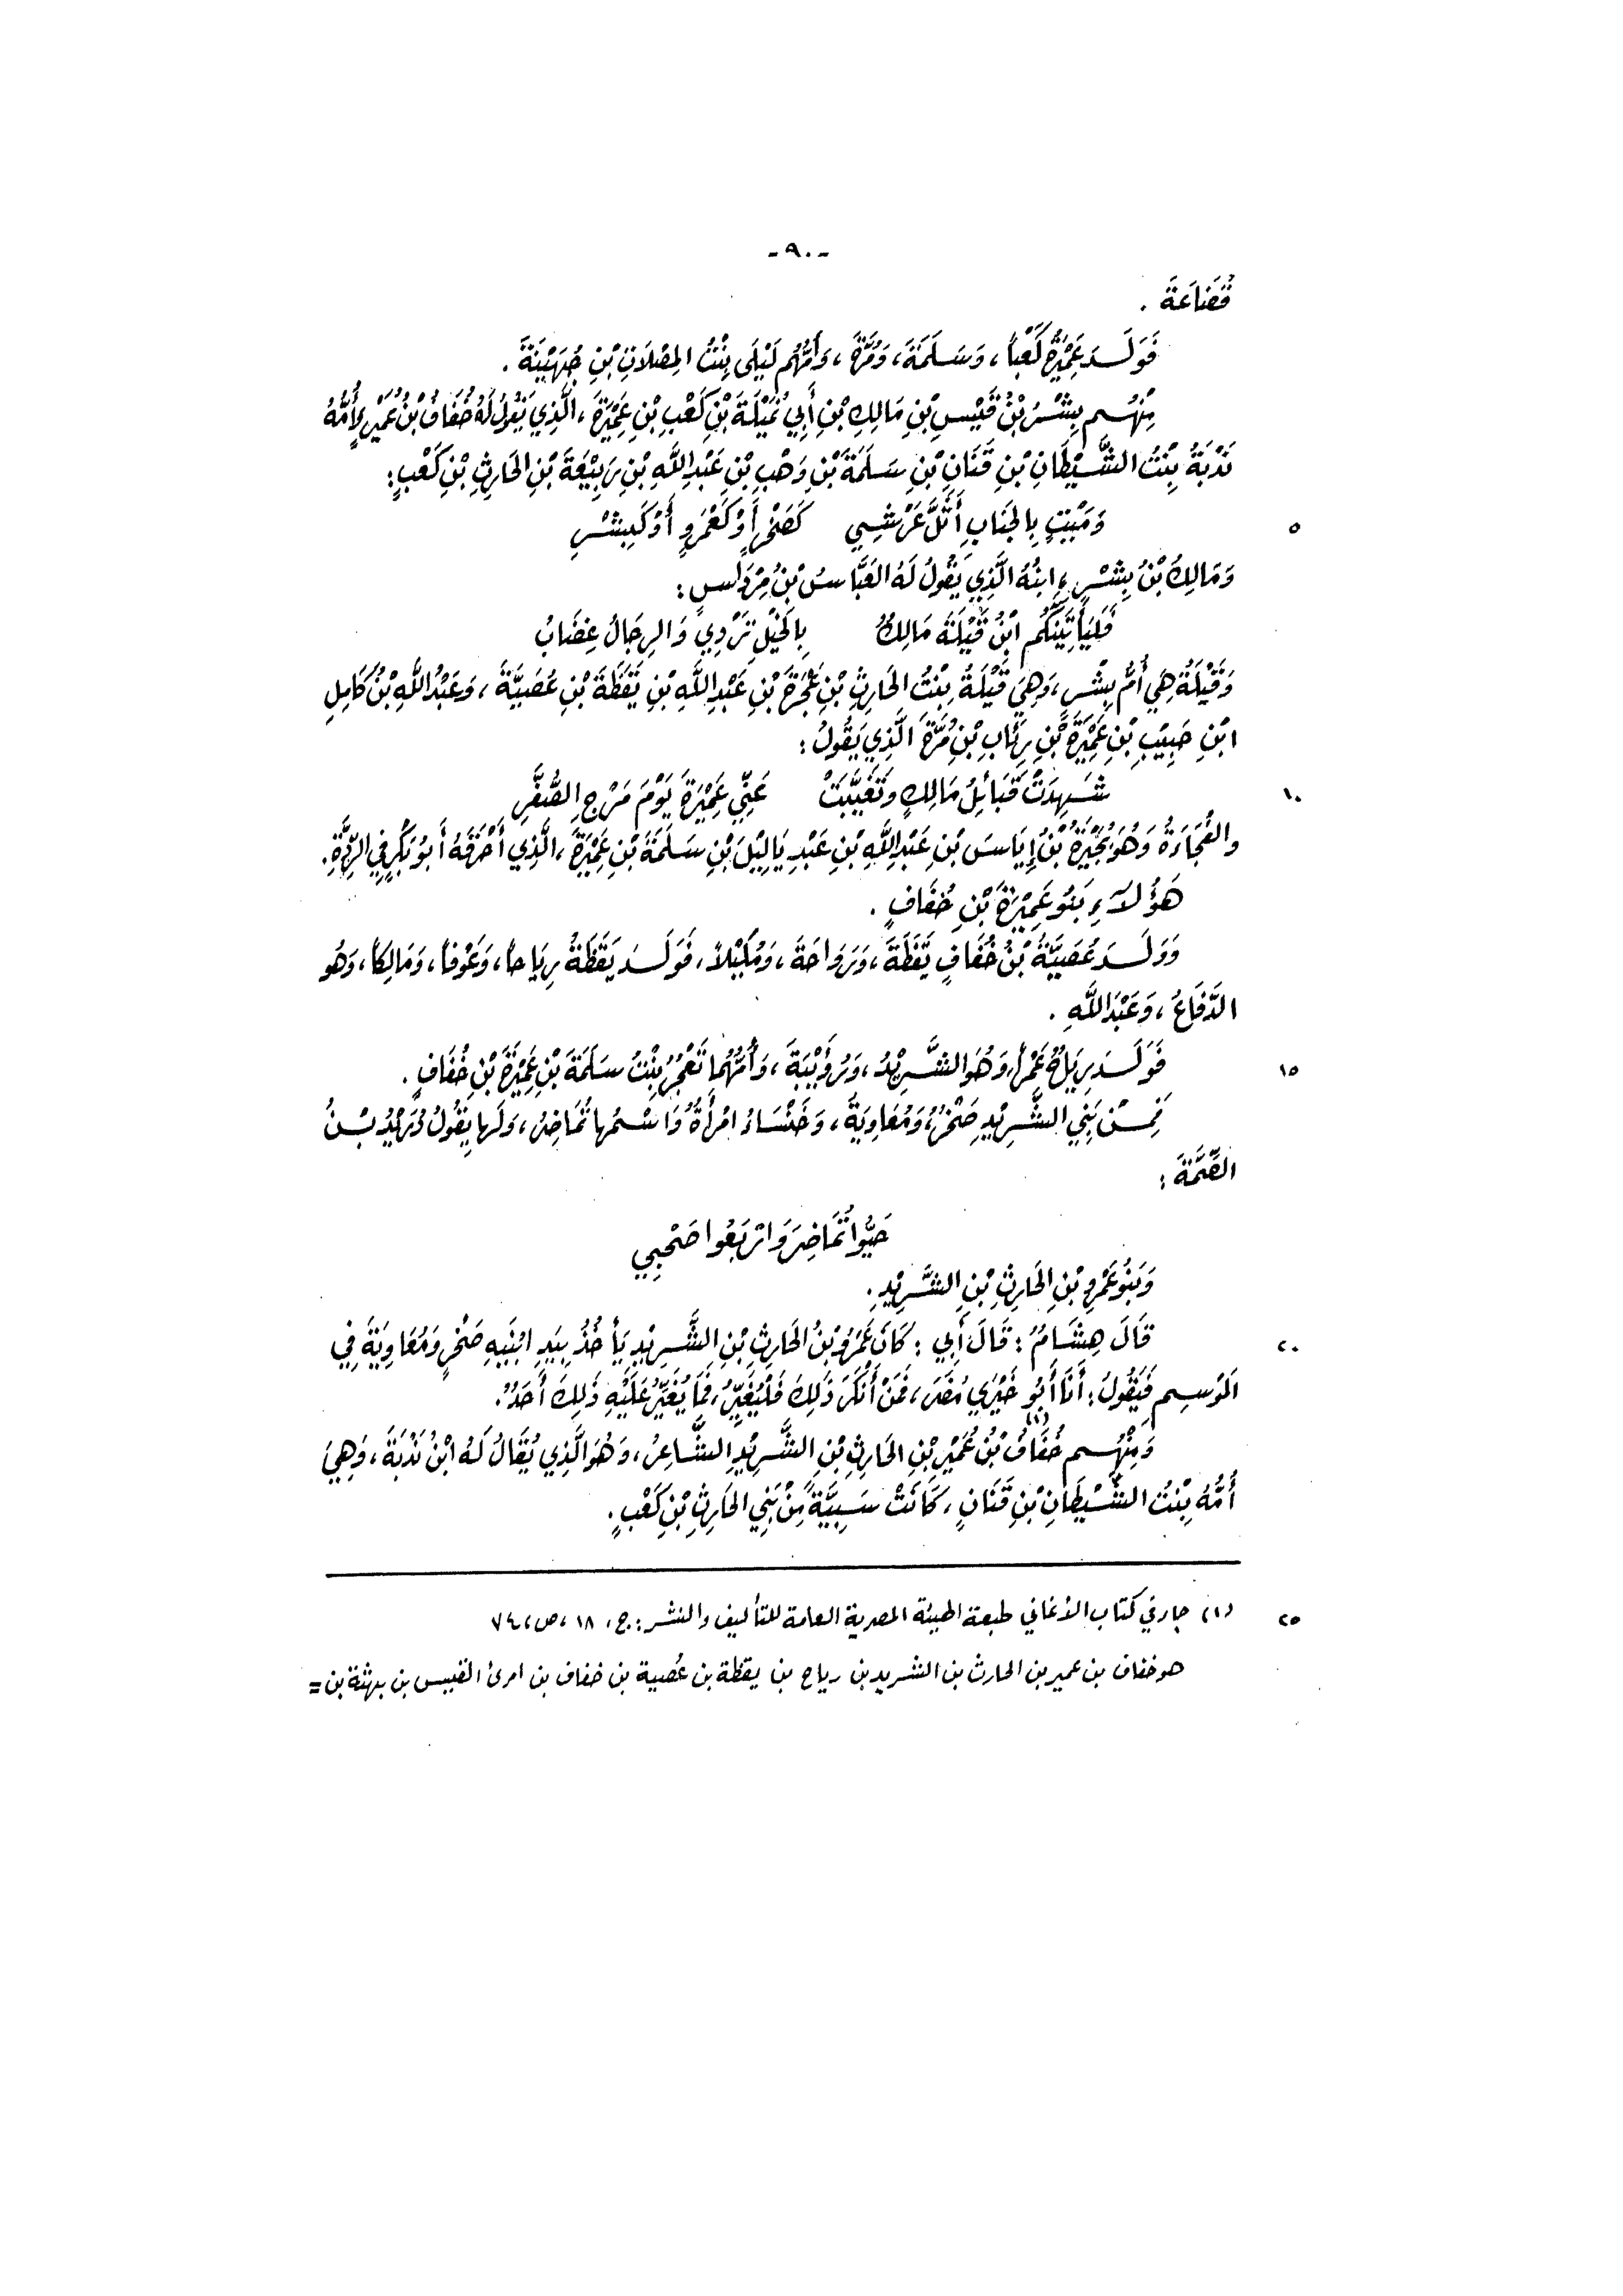 -٩٠-
قُضَاعَةَ .
فَوَلَـدَ عَمِيْرَةُ كَعْباً، وَسَلَمَةَ، وَمُرَّةَ، وَأُمُّهُم لَيْلَى بِنْتُ المِصْلَاتِ بْنِ جُهَيْنَةَ .
مِنْهُـم بِشْرُ بْنُ قَيْسِ بْنِ مَالِكِ بْنِ أَبِي نُمَيْلَةَ بْنِ كَعْبِ بْنِ عَمِيْرَةَ، الَّذِي يَقُولُ لَهُ خُفَافُ بْنُ عُمَيْرٍ وَأُمُّهُ
نَدْبَةُ بِنْتُ الشَّيْطَانِ بْنِ قَنَانِ بْنِ سَلَمَةَ بْنِ وَهْبِ بْنِ عَبْدِ اللَّهِ بْنِ رَبِيْعَةَ بْنِ الحَارِثِ بْنِ كَعْبٍ:
وَمَيْتٍ بِالجَنَابِ أَثَلَّ عَرْشِي كَصَخْرٍ أَوْ كَعَمْرٍو أَوْ كَبِشْرِ
٥
وَمَالِكُ بْنُ بِشْرٍ، ابْنُهُ الَّذِي يَقُولُ لَهُ العَبَّاسُ بْنُ مِرْدَاسٍ :
فَلَيَأْتِيَنَّكُم ابْنُ قَيْلَةَ مَالِكٌ بِالخَيْلِ تَرْدِي وَالرِجَالُ غِضَابُ
وَقَيْلَةُ هِيَ أُمُّ بِشْرٍ، وَهِيَ قَيْلَةُ بِنْتُ الحَارِثِ بْنِ عُجْرَةَ بْنِ عَبْدِ اللَّهِ بْنِ يَقَظَةَ بْنِ عُصَيَّةَ، وَعَبْدُ اللَّهِ بْنُ كَامِلِ
ابْنِ حَبِيْبِ بْنِ عَمِيْرَةَ بْنِ رِئَابِ بْنِ مُرَّةَ الَّذِي يَقُولُ :
شَهِدَتْ قَبَائِلُ مَالِكٍ وَتَغَيَّبَتْ عَنِّي عَمِيْرَةُ يَوْمَ مَرْجِ الصُّفَّرِ
١٠
والفُجَاءَةُ وَهُوَ بُجَيْرَةُ بْنُ إِيَاسَ بْنِ عَبْدِ اللَّهِ بْنِ عَبْدِ يَالِيْلَ بْنِ سَلَمَةَ بْنِ عَمِيْرَةَ، الَّذِي أَحْرَقَهُ أَبُو بَكْرٍ فِي الرِّدَّةِ.
هَؤُلَاءِ بَنُو عَمِيْرَةَ بْنِ خُفَافٍ .
وَوَلَـدَ عُصَيَّةُ بْنُ خُفَافٍ يَقَظَةَ، وَرَوَاحَةَ، وَمُلَيْلاً، فَوَلَـدَ يَقَظَةُ رِيَاحاً، وَعَوْفاً، وَمَالِكاً، وَهُو
الدَّفَاعُ، وَعَبْدَ اللَّهِ .
فَوَلَـدَ رِيَاحٌ عَمْراً، وَهُوَ الشَّرِيْدُ، وَرُؤَيْبَةَ، وَأُمُّهُمَا تَعْجُرُ بِنْتُ سَلَمَةَ بْنِ عَمِيْرَةَ بْنِ خُفَافٍ .
١٥
فَمِـنْ بَنِي الشَّرِيْدِ صَخْرٌ، وَمُعَاوِيَةُ، وَخَنْسَاءُ امْرَأَةٌ وَاسْمُها تُمَاضِرُ، وَلَها يَقُولُ دُرَيْدُ بْـنُ
الصِّمَّةَ :
حَيُّوا تُمَاضِرَ وَارْبَعُوا صَحْبِي
وَبَنُو عَمْرِو بْنِ الحَارِثِ بْنِ الشَّرِيْدِ.
قَالَ هِشَامٌ : قَالَ أَبِي : كَانَ عَمْرُو بْنُ الحَارِثِ بْنِ الشَّرِيْدِ يَأْخُذُ بِيَدِ ابْنَيهِ صَخْرٍ وَمُعَاوِيَةَ فِي
٢٠
المَوْسِمِ فَيَقُولُ: أَنَا أَبُو خَيْرَي مُضَرَ، فَمَنْ أَنْكَرَ ذَلِكَ فَلْيُغَيِّرْ، فَمَا يُغَيِّرُ عَلَيْهِ ذَلِكَ أَحَدٌ.
وَمِنْهُـم خُفَافُ(١) بْنُ عُمَيْرِ بْنِ الحَارِثِ بْنِ الشَّرِيْدِ الشَّاعِرُ، وَهُوَ الَّذِي يُقَالُ لَهُ ابْنُ نَدْبَةَ، وَهِيَ
أُمُّهُ بِنْتُ الشَّيْطَانِ بْنِ قَنَانٍ، كَانَتْ سَبِيَّةً مِنْ بَنِي الحَارِثِ بْنِ كَعْبٍ.
(١) جاء في كتاب الأغاني طبعة الهيئة المصرية العامة للتأليف والنشر : ج، ١٨ ،ص، ٧٤
٢٥
هو خفاف بن عمير بن الحارث بن الشريد بن رياح بن يقظة بن عُصية بن خفاف بن امرئ القيس بن بهثة بن =